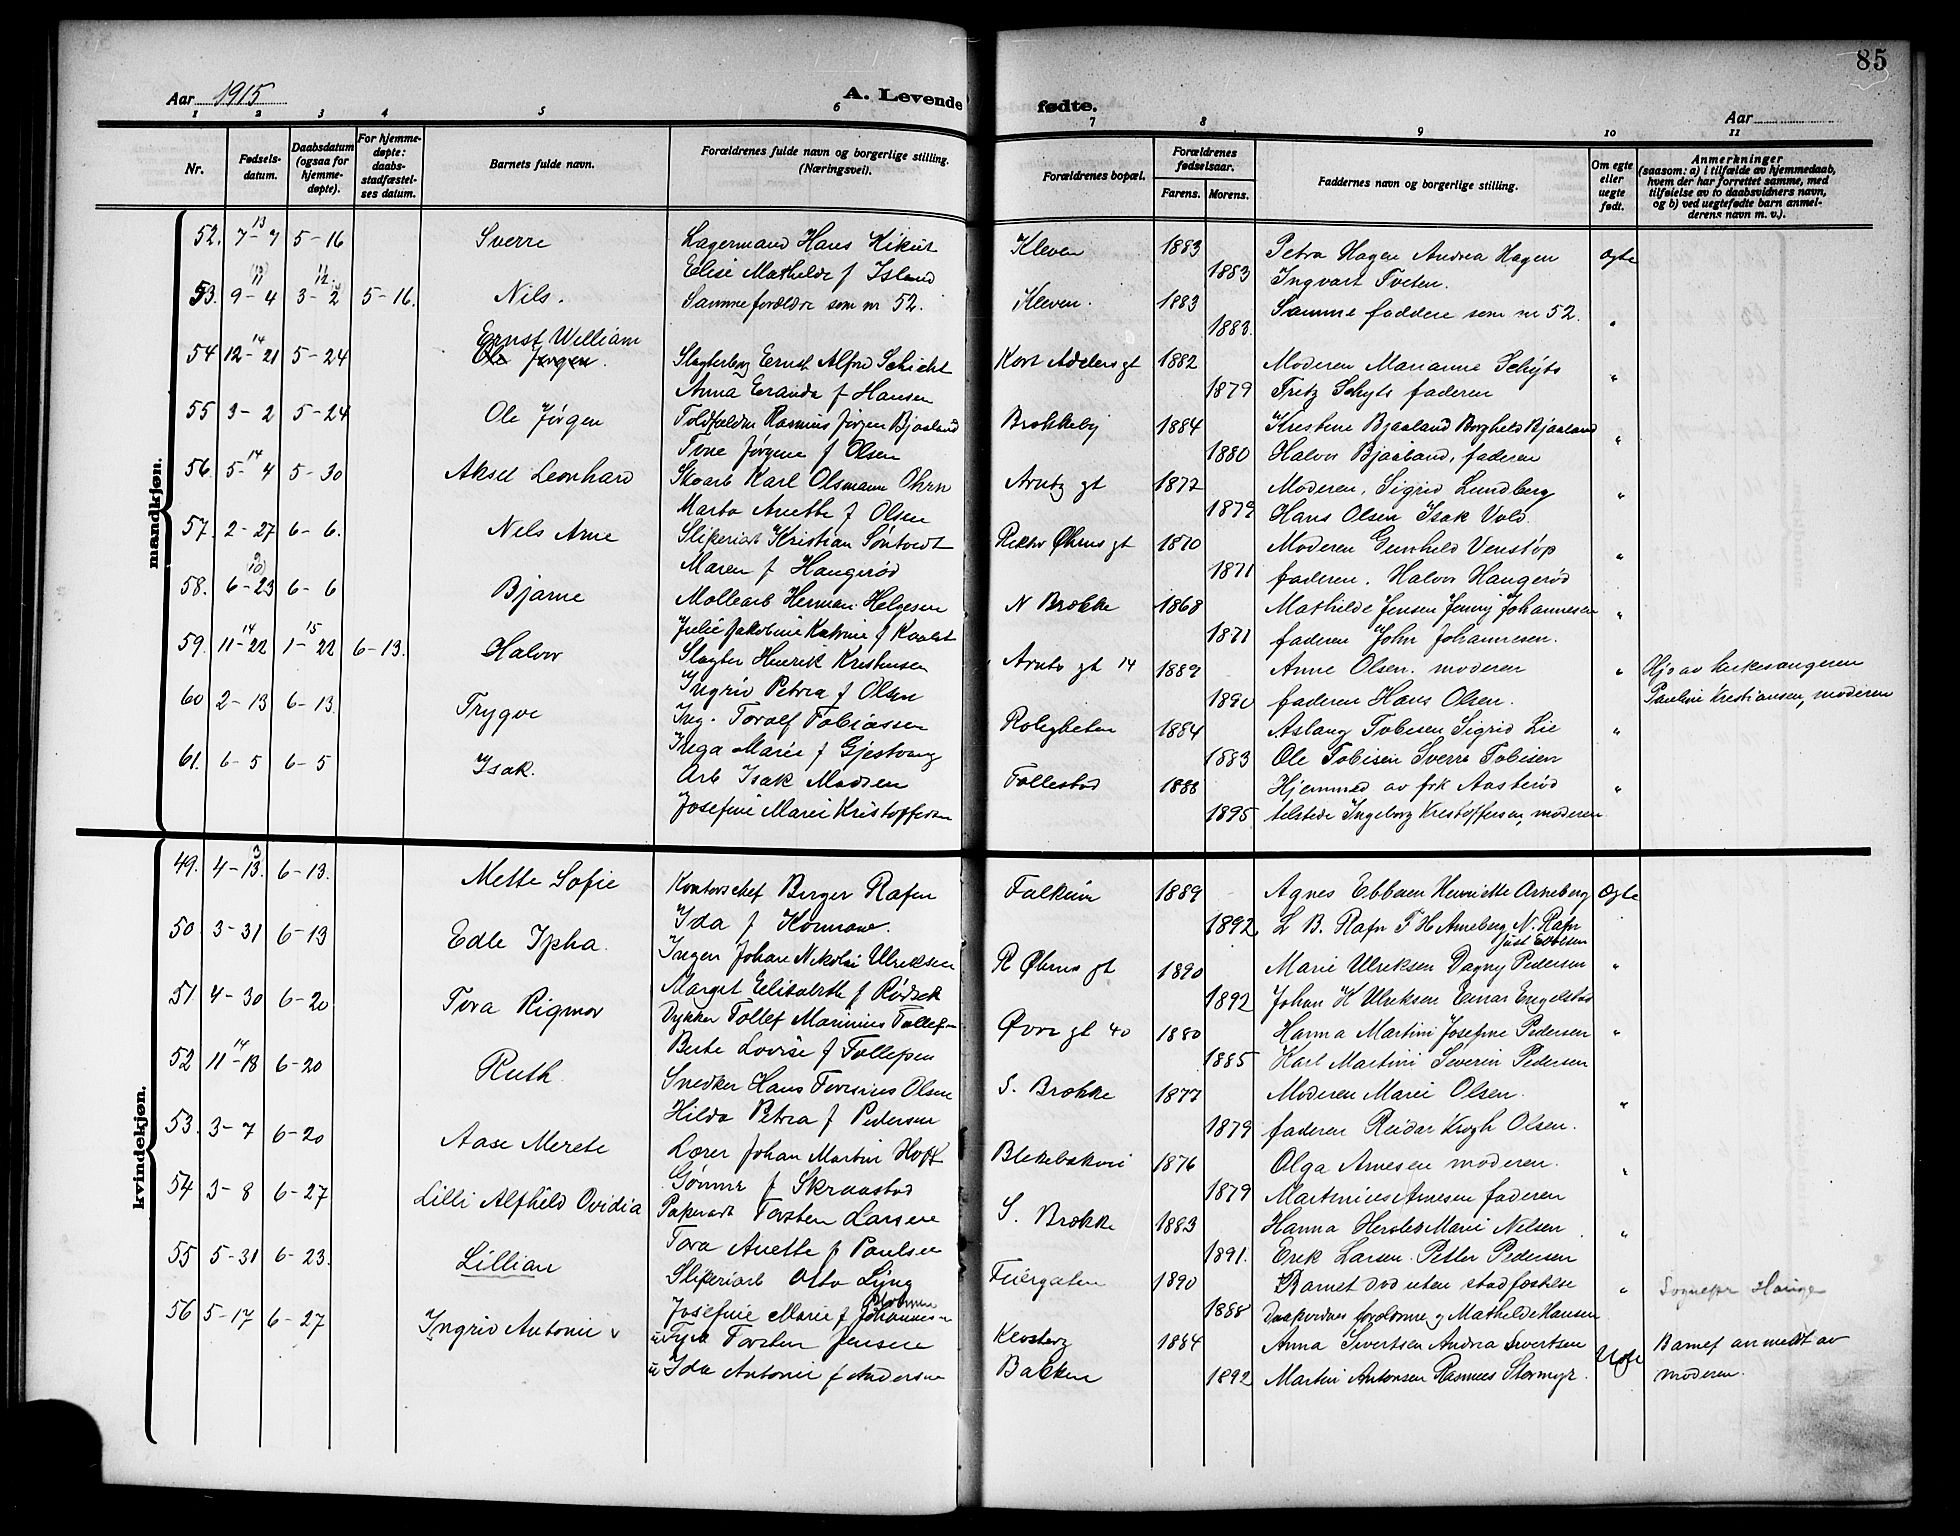 85
Aar 1915
A. Levende fødte.
Aar
1 2 3 4 5 6 7 8 9 10 11
Nr.
Fødsels-
datum.
Daabsdatum
(ogsaa for
hjemme-
døpte).
For hjemme-
døpte:
daabs-
stadfæstel-
ses datum.
Barnets fulde navn.
Forældrenes fulde navn og borgerlige stilling.
(Næringsvei).
Forældrenes bopæl.
Forældrenes
fødselsaar.
Farens. Morens.
Faddernes navn og borgerlige stilling.
Om egte
eller
uegte
født.
Anmerkninger
(saasom: a) i tilfælde av hjemmedaab,
hvem der har forrettet samme, med
tilføielse av to daabsvidners navn,
og b) ved uegtefødte barn anmel-
derens navn m. v.).
mandkjøn.
52. 7-13 7 5-16 Sverre Lagermand Hans Kikut Kleven 1883 Petra Hagen Andrea Hagen Ægte
Elise Mathilde f Island 1883 Ingvart Tveten.
53. 9-4 3-2 5-16. Nils. Samme forældre som nr 52. Kleven. 1883 Samme faddere som nr 52. "
1883.
Ernst William
54 12-14 21 5-24 Ole Jørgen. Ernst Alfred Schicht Kort Adelers gt 1882 Moderen Marianne Schyts "
Anna f Hansen 1879 Fritz Schyts faderen
55 3-2 5-24 Ole Jørgen Rasmus Jørgen Bjaaland Brekkeby 1884 Kristine Bjaaland Borghild Bjaaland "
Tone Jørgine f Olsen 1880 Halvor Bjaaland, faderen
56. 5-14 4 5-30 Aksel Leonhard Skoarb Karl Olsmann Ohrn Arntz gt 1877 Moderen, Sigrid Lundberg "
Marta Anette f Olsen 1879 Hans Olsen Isak Vold
57. 2-27 6-6. Nils Arne Sliperiarb Kristian Søntvedt Rektor Ørns gt 1870 Moderen Gunhild Venstøp "
Maren f Haugerød 1871 faderen. Halvor Haugerød
58. 6-23 6-6 Bjarne Møllearb Herman Helgesen N Brekke 1868 Mathilde Jensen Jenny Johannesen "
Julie Jakobine Katrine f 1871 faderen John Johannesen.
59. 11-14 22 1-15 22 6-13. Halvor Slagter Henrik Kristensen Arntz gt 14 1889 Anne Olsen. moderen " Hjd av kirkesangeren
Ingrid Petra f Olsen 1890 faderen Hans Olsen. Pauline Kristiansen, moderen
60 2-13 6-13. Trygve Ing. Toralf Tobiassen Roligheten 1884 Aslaug Tobisen Sigrid Lie "
Inga Marie f Gjestvang 1883 Ole Tobisen Sverre Tobisen
61. 6-5 6-5 Isak. Arb Isak Madsen Follestad 1888 Hjemmed av frk Aasterød "
Josefine Marie Kristoffersen 1895 tilstede Ingeborg Kristoffersen, moderen
kvindekjøn.
49. 4-13. 6-13. Mette Sofie Kontorchef Berger Rafen Falkum 1889 Agnes Ebbesen Henriette Arneberg Ægte
Ida f 1892 L B. Rafn F H Arneberg N. Rafn
Just Ebbesen
50. 3-31 6-13 Edle Ipha. Ingen Johan Nikolai Ulriksen R Ørns gt 1890 Marie Ulriksen Dagny Pedersen "
Margit Elisabeth f 1892 Johan H Ulriksen Einar Engelstad
51 4-30 6-20 Tora Rigmor Dykker Tollef Marinius Tollefsen Øvre gt 40 1880 Hanna Martini Josefine Pedersen "
Berte Lovise f Tollefsen 1885 Karl Martini Severin Pedersen
52 11-14 18 6-20 Ruth. Snedker Hans Olsen S. Brekke 1877 Moderen Marie Olsen. "
Hilda Petra f Pedersen 1879 faderen Reidar Krogh Olsen.
53. 3-7 6-20 Aase Merete Lærer Johan Martin Hoff 1876 Olga Arnesen moderen. "
f Skraastad 1879 Martinius Arnesen faderen
54 3-8 6-27 Lilli Alfhild Ovidia Papirarb Torsten Larsen S. Brekke 1883 Hanna Marie Nilsen "
Tora Anette f Paulsen 1891. Erik Larsen. Petter Pedersen
55 5-31 6-23. Lillian Sliperiarb Otto Ljng Feiergaten 1890 Barnet død uten stadfæstelse " Sognepr Hauge
Josefine Marie f Johannesen 1888 og Mathilde Hansen
56 5-17 6-27 Ingrid Antonie Torsten Jensen Kloster 1884 Anna Sivertsen Andrea Sivertsen Uegte Barnet anmeldt av
Ida Antonie f Andersen Bakken 1892 Martin Antonsen Rasmus Stormyr. moderen.